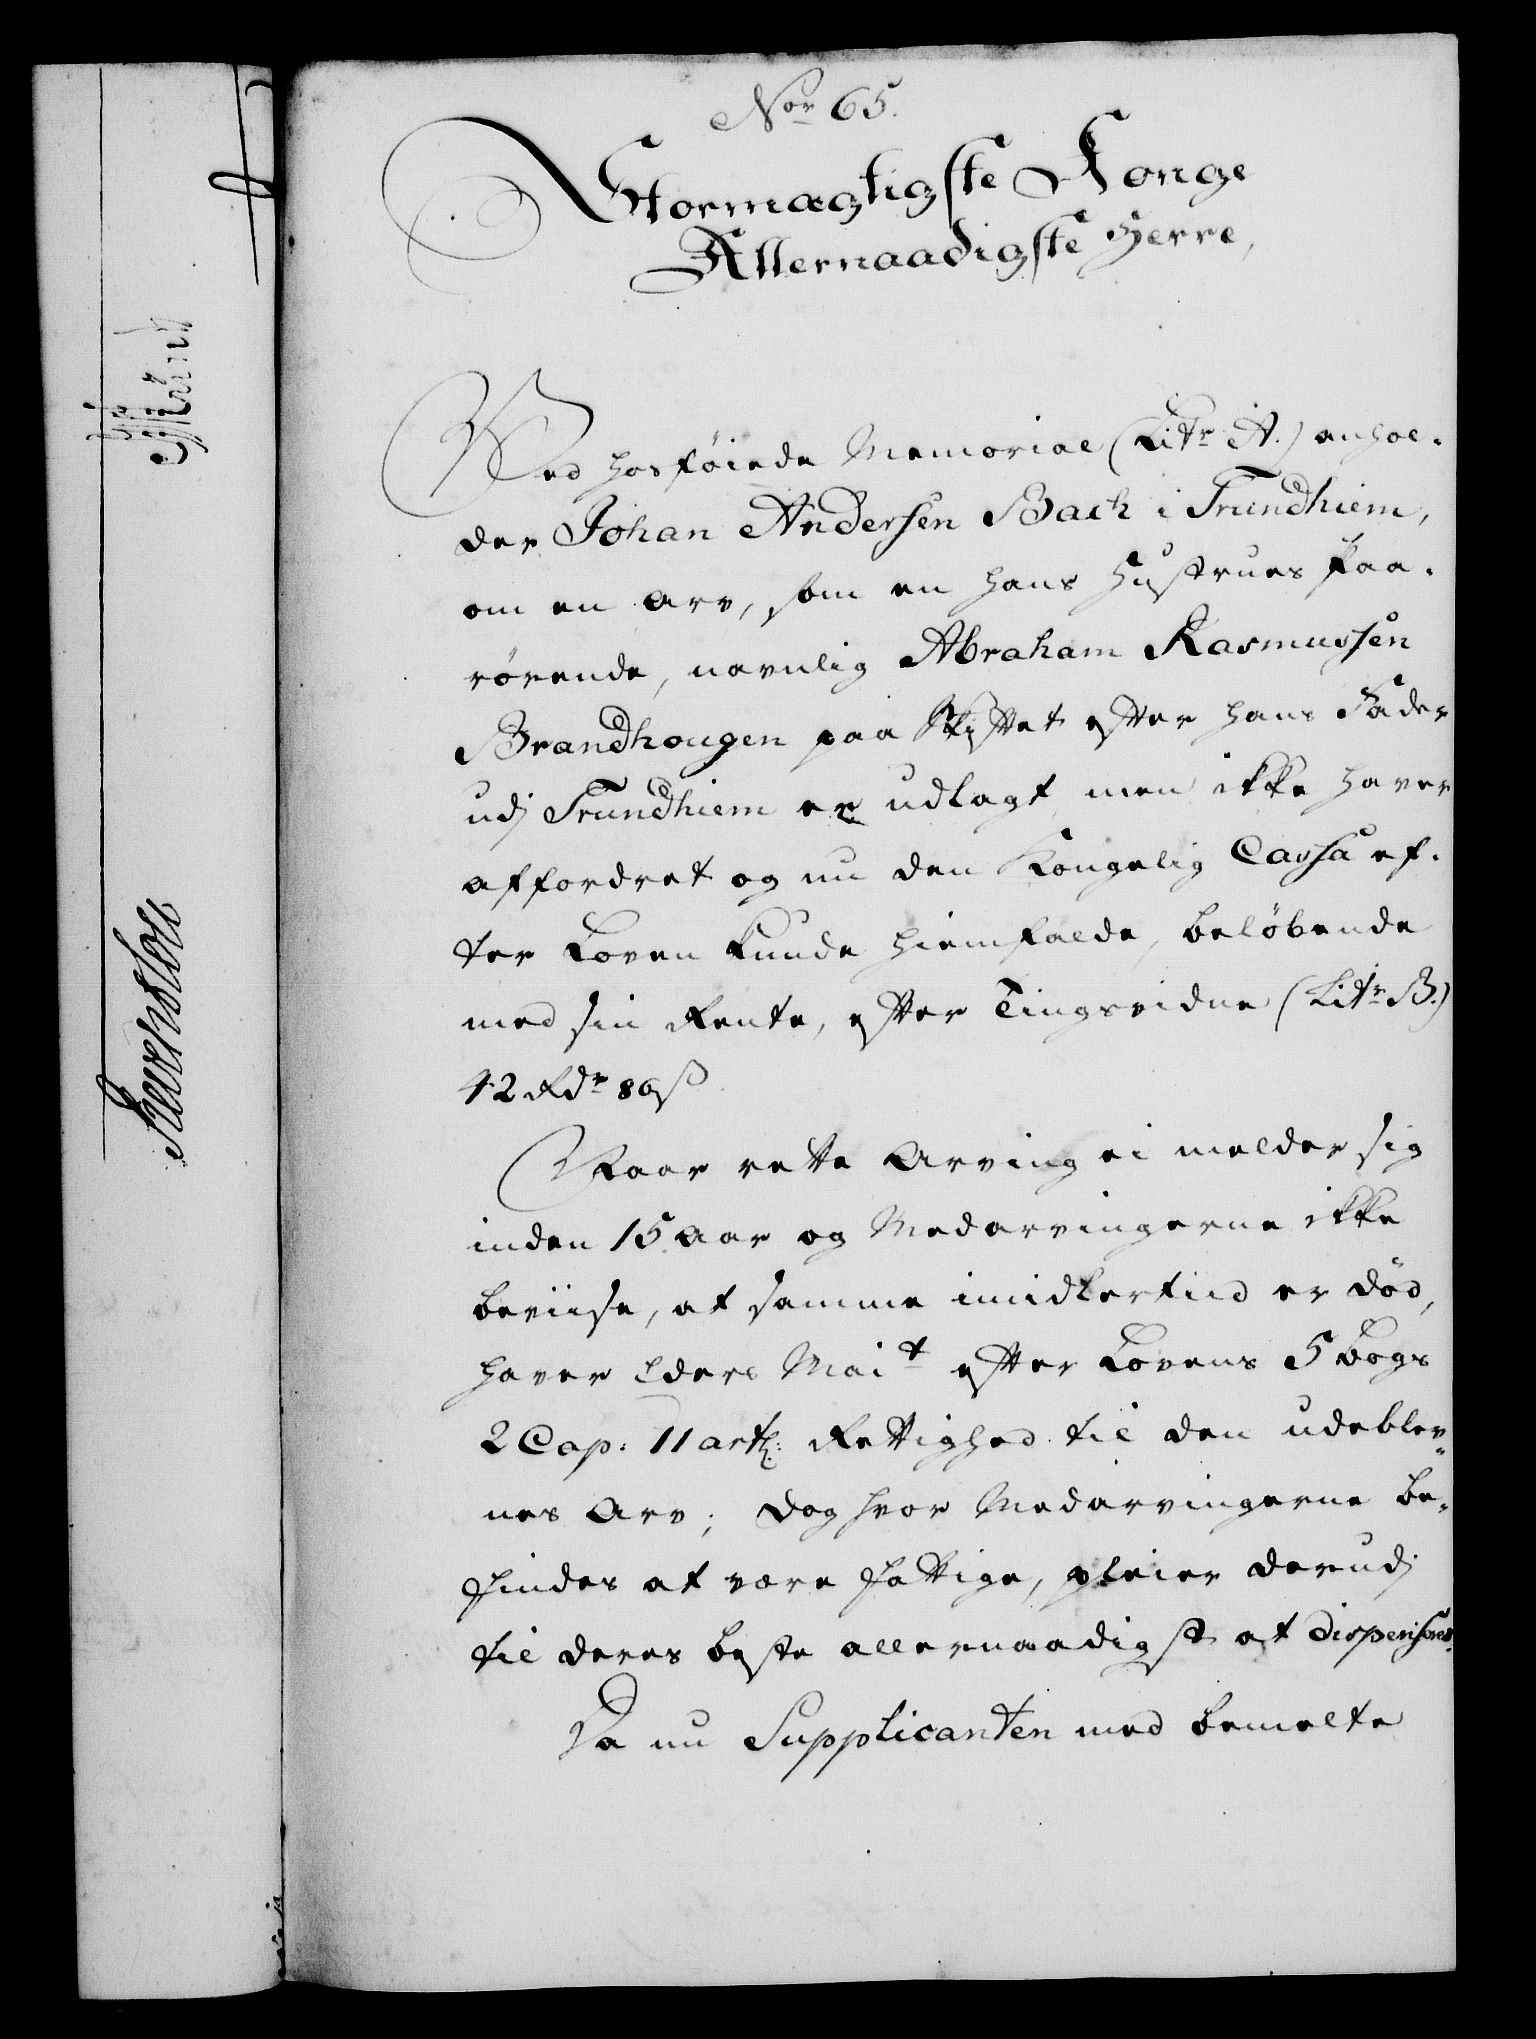 Nor 65.
Stormægtigste Konge
Allernaadigste Herre,
Ved hosföiede Memorial (Litr A.) anhol-
der Johan Andersen Bach i Trundhiem,
om en Arv, som en hans Hustrues Paa-
rörende, navnlig Abraham Rasmussen
Brandhougen paa Skiftet efter hans Fader
udj Trundhiem er udlagt men ikke haver
affordret og nu den Kongelig Cassa ef-
ter Loven kunde hiemfalde, belöbende
med sin Rente, efter Tingsvidne (Litr B.)
42 Rdr 86 ß
Naar rette Arving ei melder sig
inden 15 Aar og Medarvingerne ikke
beviise, at samme imidlertiid er död,
haver Eders Mait efter Lovens 5 Bogs
2 Cap: 11 art: Rettighed til den udeblev-
nes Arv; dog hvor Medarvingerne be-
findes at være fattige, pleier derudj
til deres beste allernaadigst at dispenseres.
Da nu Supplicanten med bemelte